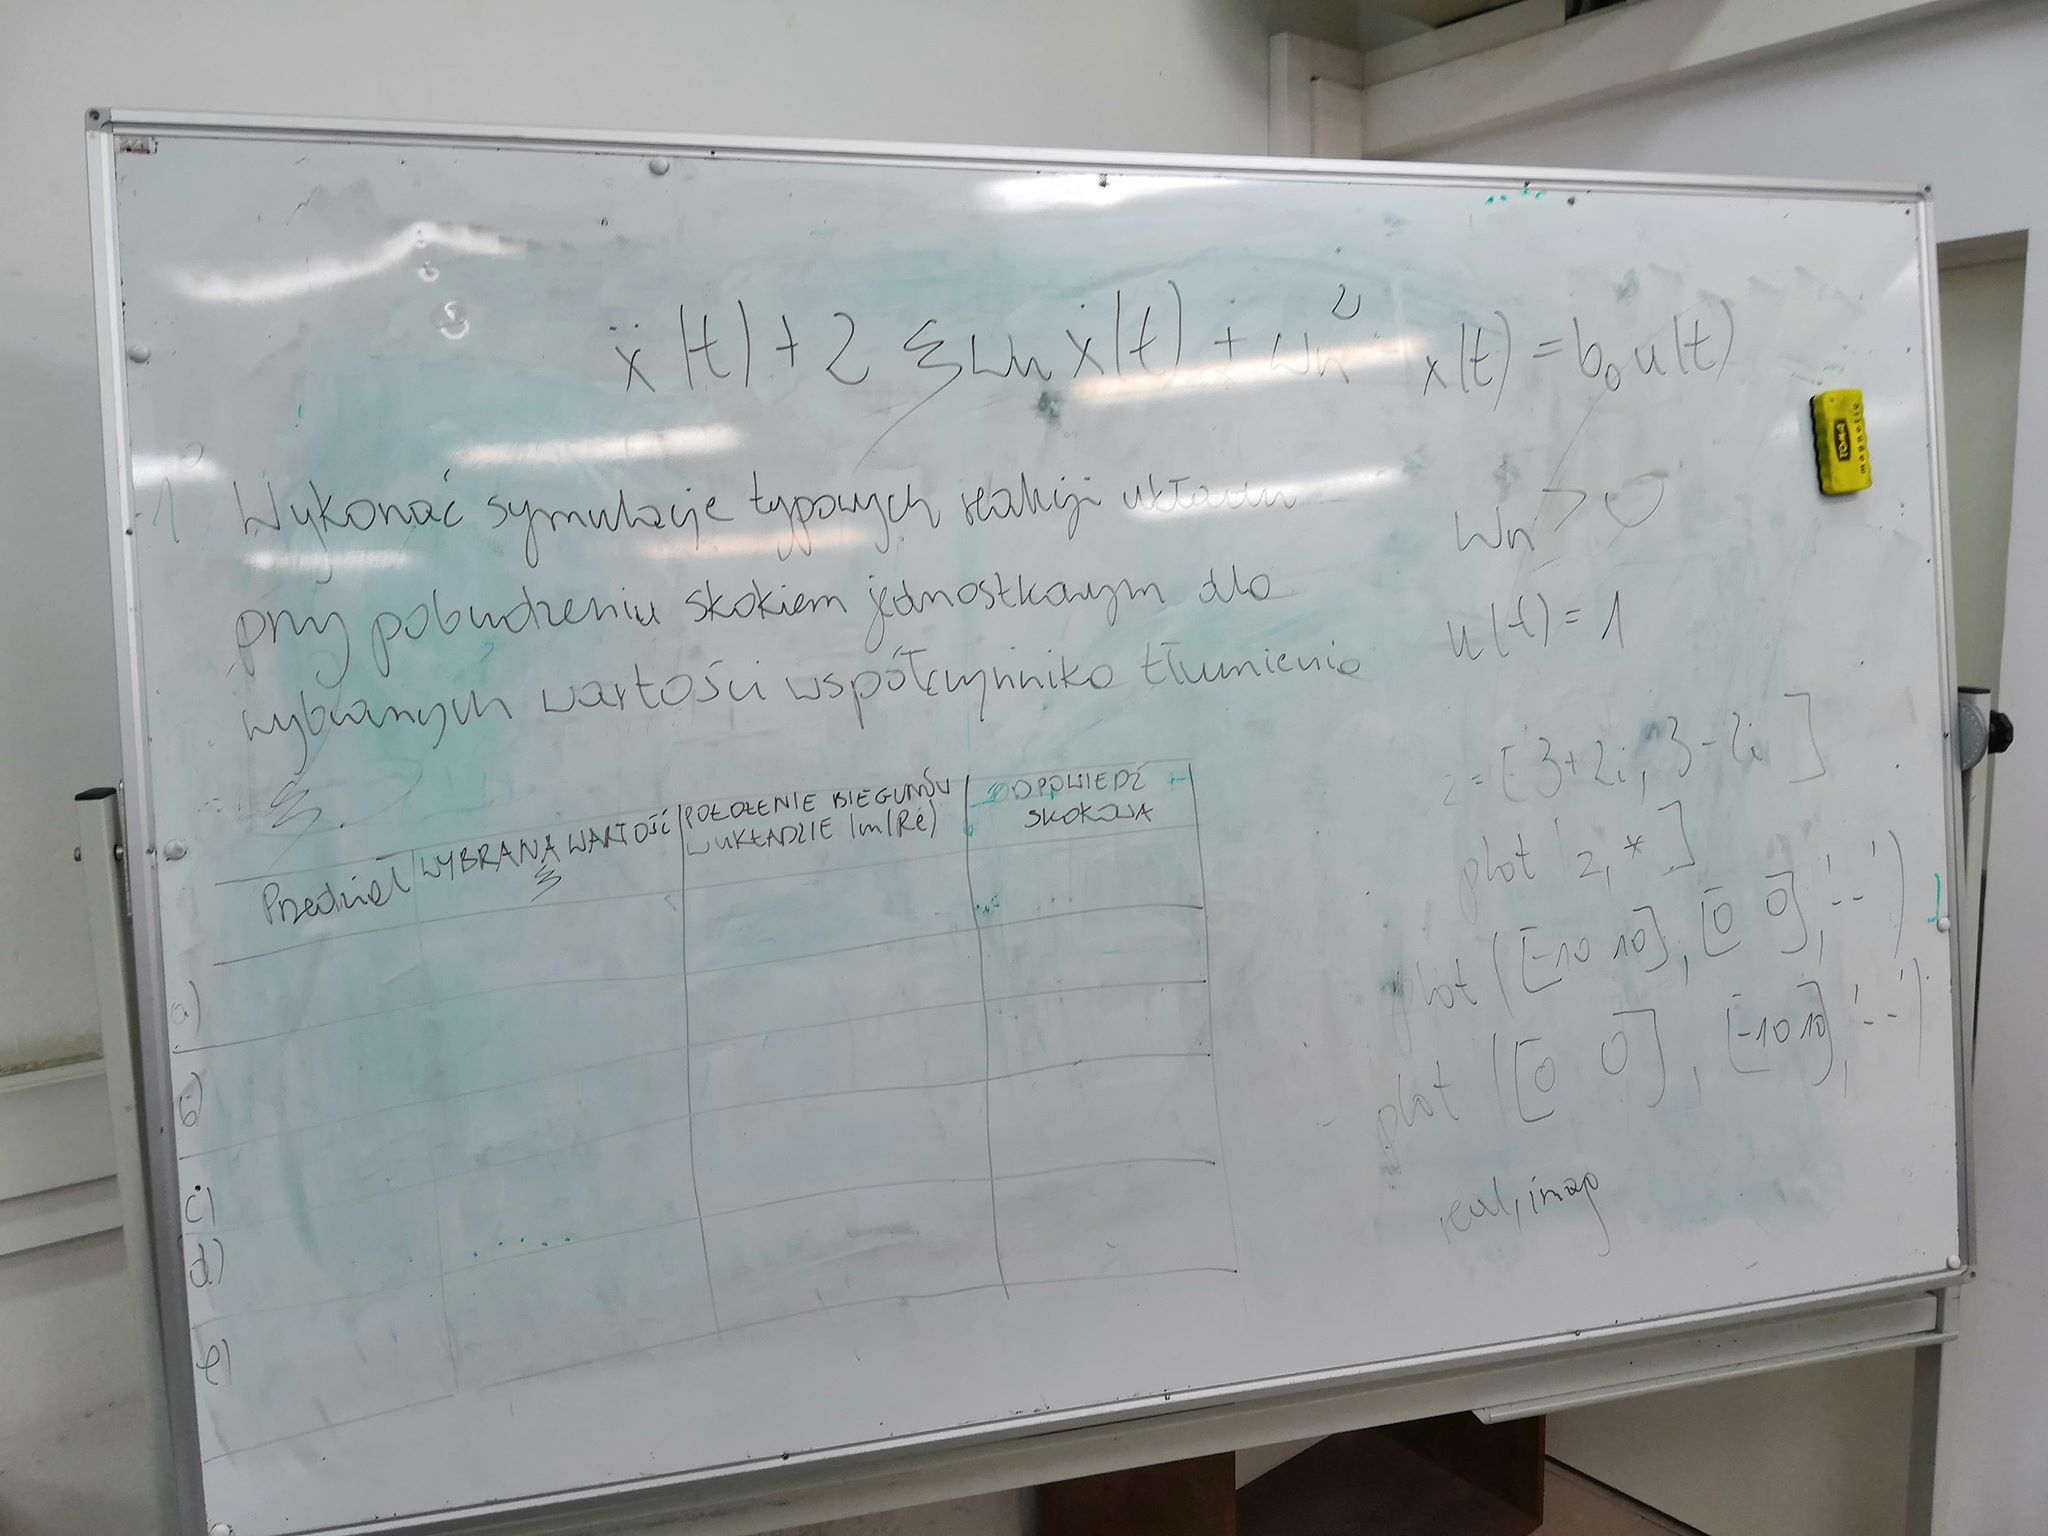 ẍ(t) + 2 ξ ωn ẋ(t) + ωn² x(t) = b₀ u(t)
1° Wykonać symulacje typowych reakcji układu
przy pobudzeniu skokiem jednostkowym dla
wybranych wartości współczynnika tłumienia
ξ.
Przedział
WYBRANA WARTOŚĆ
ξ
POŁOŻENIE BIEGUNÓW
W UKŁADZIE Im(Re)
ODPOWIEDŹ
SKOKOWA
a)
b)
c)
d)
e)
ωn > 0
u(t) = 1
z = [3+2i, 3-2i]
plot [z, *]
plot ([-10 10], [0 0], '--')
plot ([0 0], [-10 10], '--')
real, imag
TOMA
magnetic